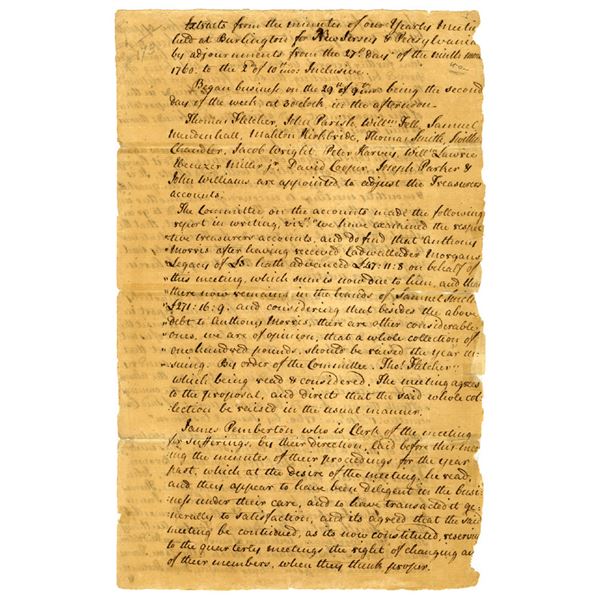 Extracts from the minutes of our Yearly Meeti
held at Burlington for New Jersey & Pensylvania
by adjournments from the 27th day of the ninth mon
1760 to the 2d of 10th mo: Inclusive.
Began business on the 29th of 9th mo being the second
day of the week at 3 oclock, in the afternoon.
Thomas Fletcher, John Parish, Willm Fell, Samuel
Mendenhall, Mahlon Kirkbride, Thomas Smith, Swithin
Chandler, Jacob Wright, Peter Harvey, Willm Lawrie
Ebenezer Miller jr. David Cooper, Joseph Parker &
John Williams are appointed to adjust the Treasurers
accounts.
The Committee on the accounts made the following
report in writing, vizt. "we have examined the respec
"tive treasurers accounts, and do find that Anthony
"Morris after having received Cadwallader Morgans
"Legacy of £5. hath advanced £47:11:8 on behalf of
"this meeting, which sum is now due to him, and that
"there now remains in the hands of Samuel Smith
"£271:16:9. and considering that besides the above
"debt to Anthony Morris, there are other considerable
"ones, we are of opinion, that a whole collection of
"one hundred pounds, should be raised the year in-
"suing. By order of the Committee. Thos. Fletcher
which being read & considered. The meeting agrees
to the proposal, and direct that the said whole col-
lection be raised in the usual manner.
James Pemberton who is Clerk of the meeting
for sufferings, by their direction, laid before this mee
ing the minutes of their procidings for the year
past, which at the desire of the meeting, he read,
and they appear to have been diligent in the busi
ness under their care, and to have transacted it ge-
nerally to satisfaction, and its agreed that the said
meeting be continued, as its now constituted, reserving
to the quarterly meetings the right of changing an
of their members, when they think proper.